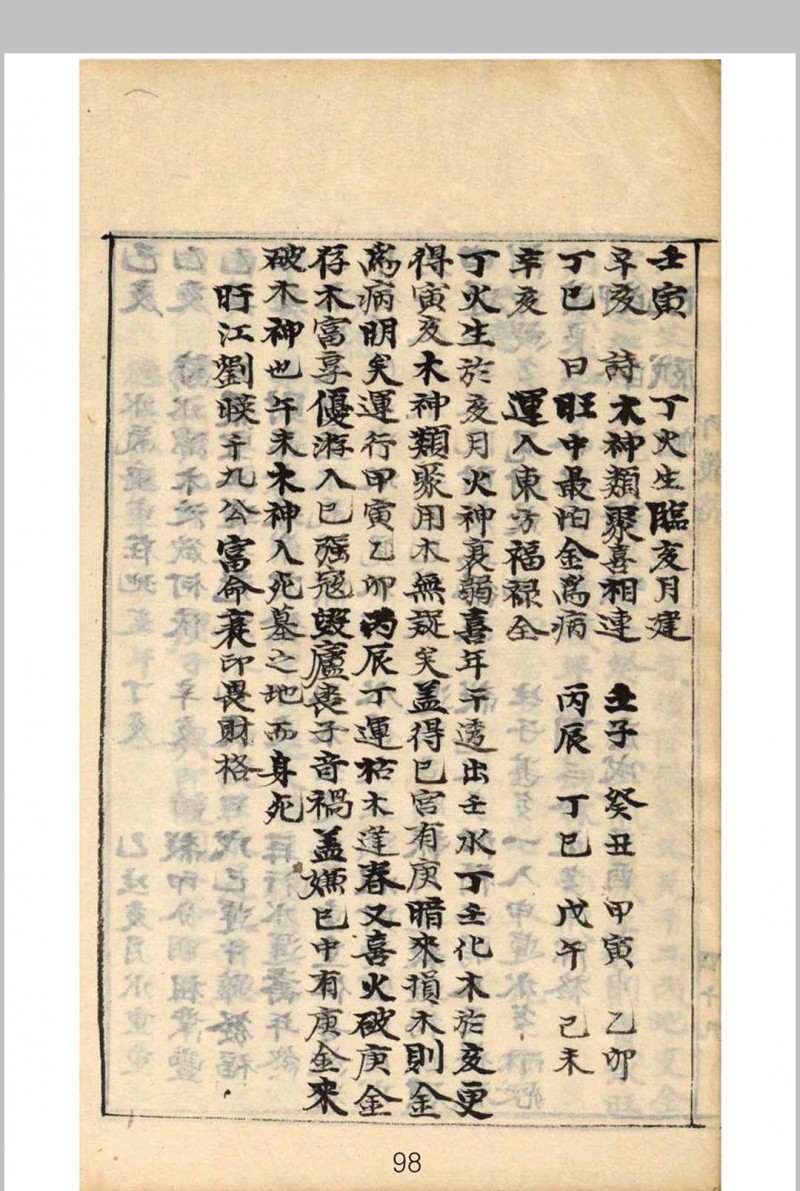 壬寅 丁火生臨亥月建
辛亥 詩 木神類聚喜相連 壬子 癸丑 甲寅 乙卯
丁巳 曰 旺中最怕金爲病 丙辰 丁巳 戊午 己未
辛亥 運入東方福禄全
丁火生於亥月火神衰弱喜年干透出壬水丁壬化木於亥更
得寅亥木神類聚用木無疑矣盖得巳宮有庚暗來損木則金
爲病明矣運行甲寅乙卯丙辰丁運枯木逢春又喜火破庚金
存木富享優游入巳强寇毁廬喪子音禍盖嫌巳中有庚金來
破木神也午未木神入死墓之地而身死
盱江劉暎千九公富命衰印畏財格
98